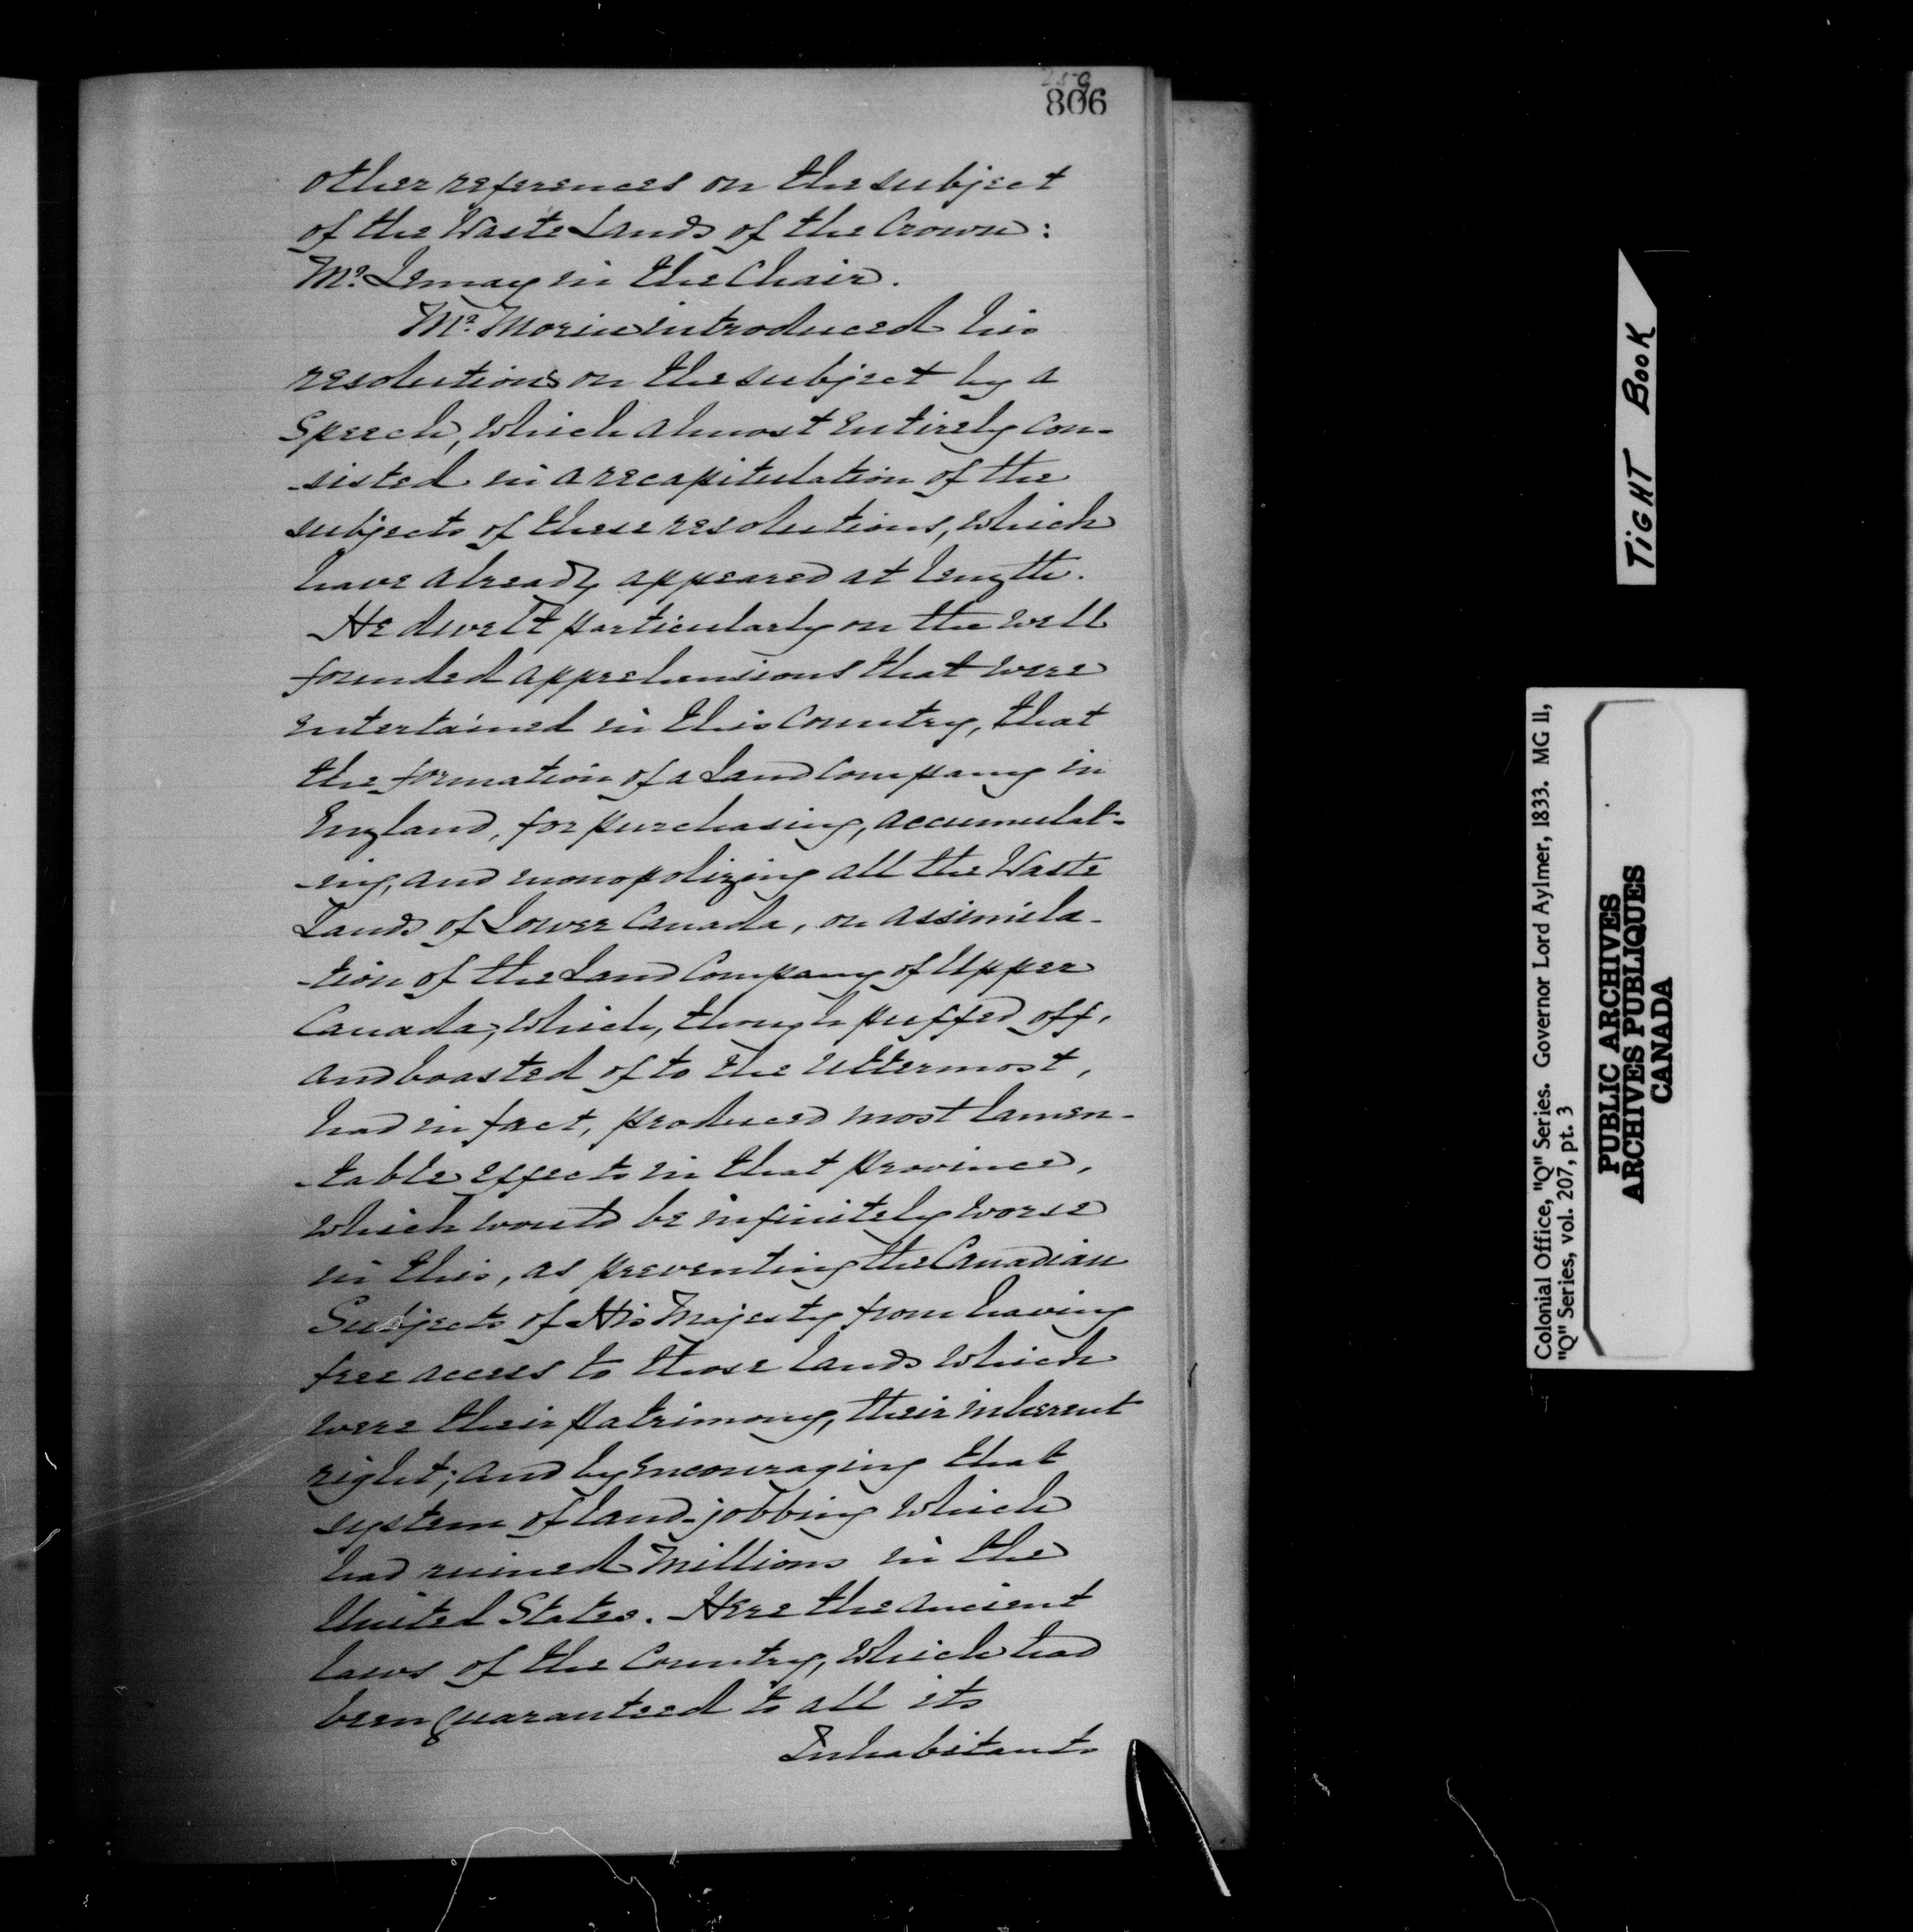 259
806
other references on the subject
of the Waste Lands of the Crown:
Mr. Lemay in the Chair.
Mr. Morin introduced his
resolutions on the subject by a
Speech, which almost entirely con-
-sisted in a recapitulation of the
subjects of these resolutions, which
have already appeared at length.
He dwelt particularly on the well
founded apprehensions that were
entertained in this Country, that
the formation of a Land Company in
England, for purchasing, accumulat-
-ing, and monopolizing all the Waste
Lands of Lower Canada, on assimila-
-tion of the Land Company of Upper
Canada, which, though puffed off,
and boasted of to the uttermost,
had in fact, produced most lamen-
-table effects in that Province,
which would be infinitely worse
in this, as preventing the Canadian
Subjects of His Majesty from having
free access to those lands which
were their patrimony, their inherent
right; and by encouraging that
system of land-jobbing which
had ruined Millions in the
United States. Here the ancient
laws of the Country, which had
been guaranteed to all its
Inhabitants
TiGHT BooK
Colonial Office, "Q" Series. Governor Lord Aylmer, 1833. MG 11,
"Q" Series, vol. 207, pt. 3
PUBLIC ARCHIVES
ARCHIVES PUBLIQUES
CANADA